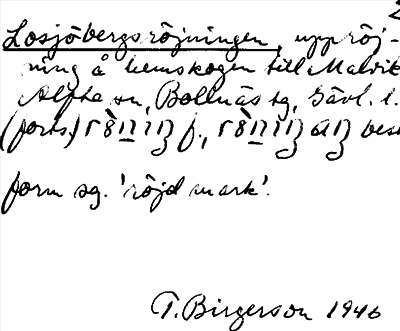 Losjöbergsröjningen, uppröj-
ning å hemskogen till Malvik
Alfta sn, Bollnäs tg, Gävl. l.
(forts.) f., best
form sg. 'röjd mark'.
T. Birgerson 1946